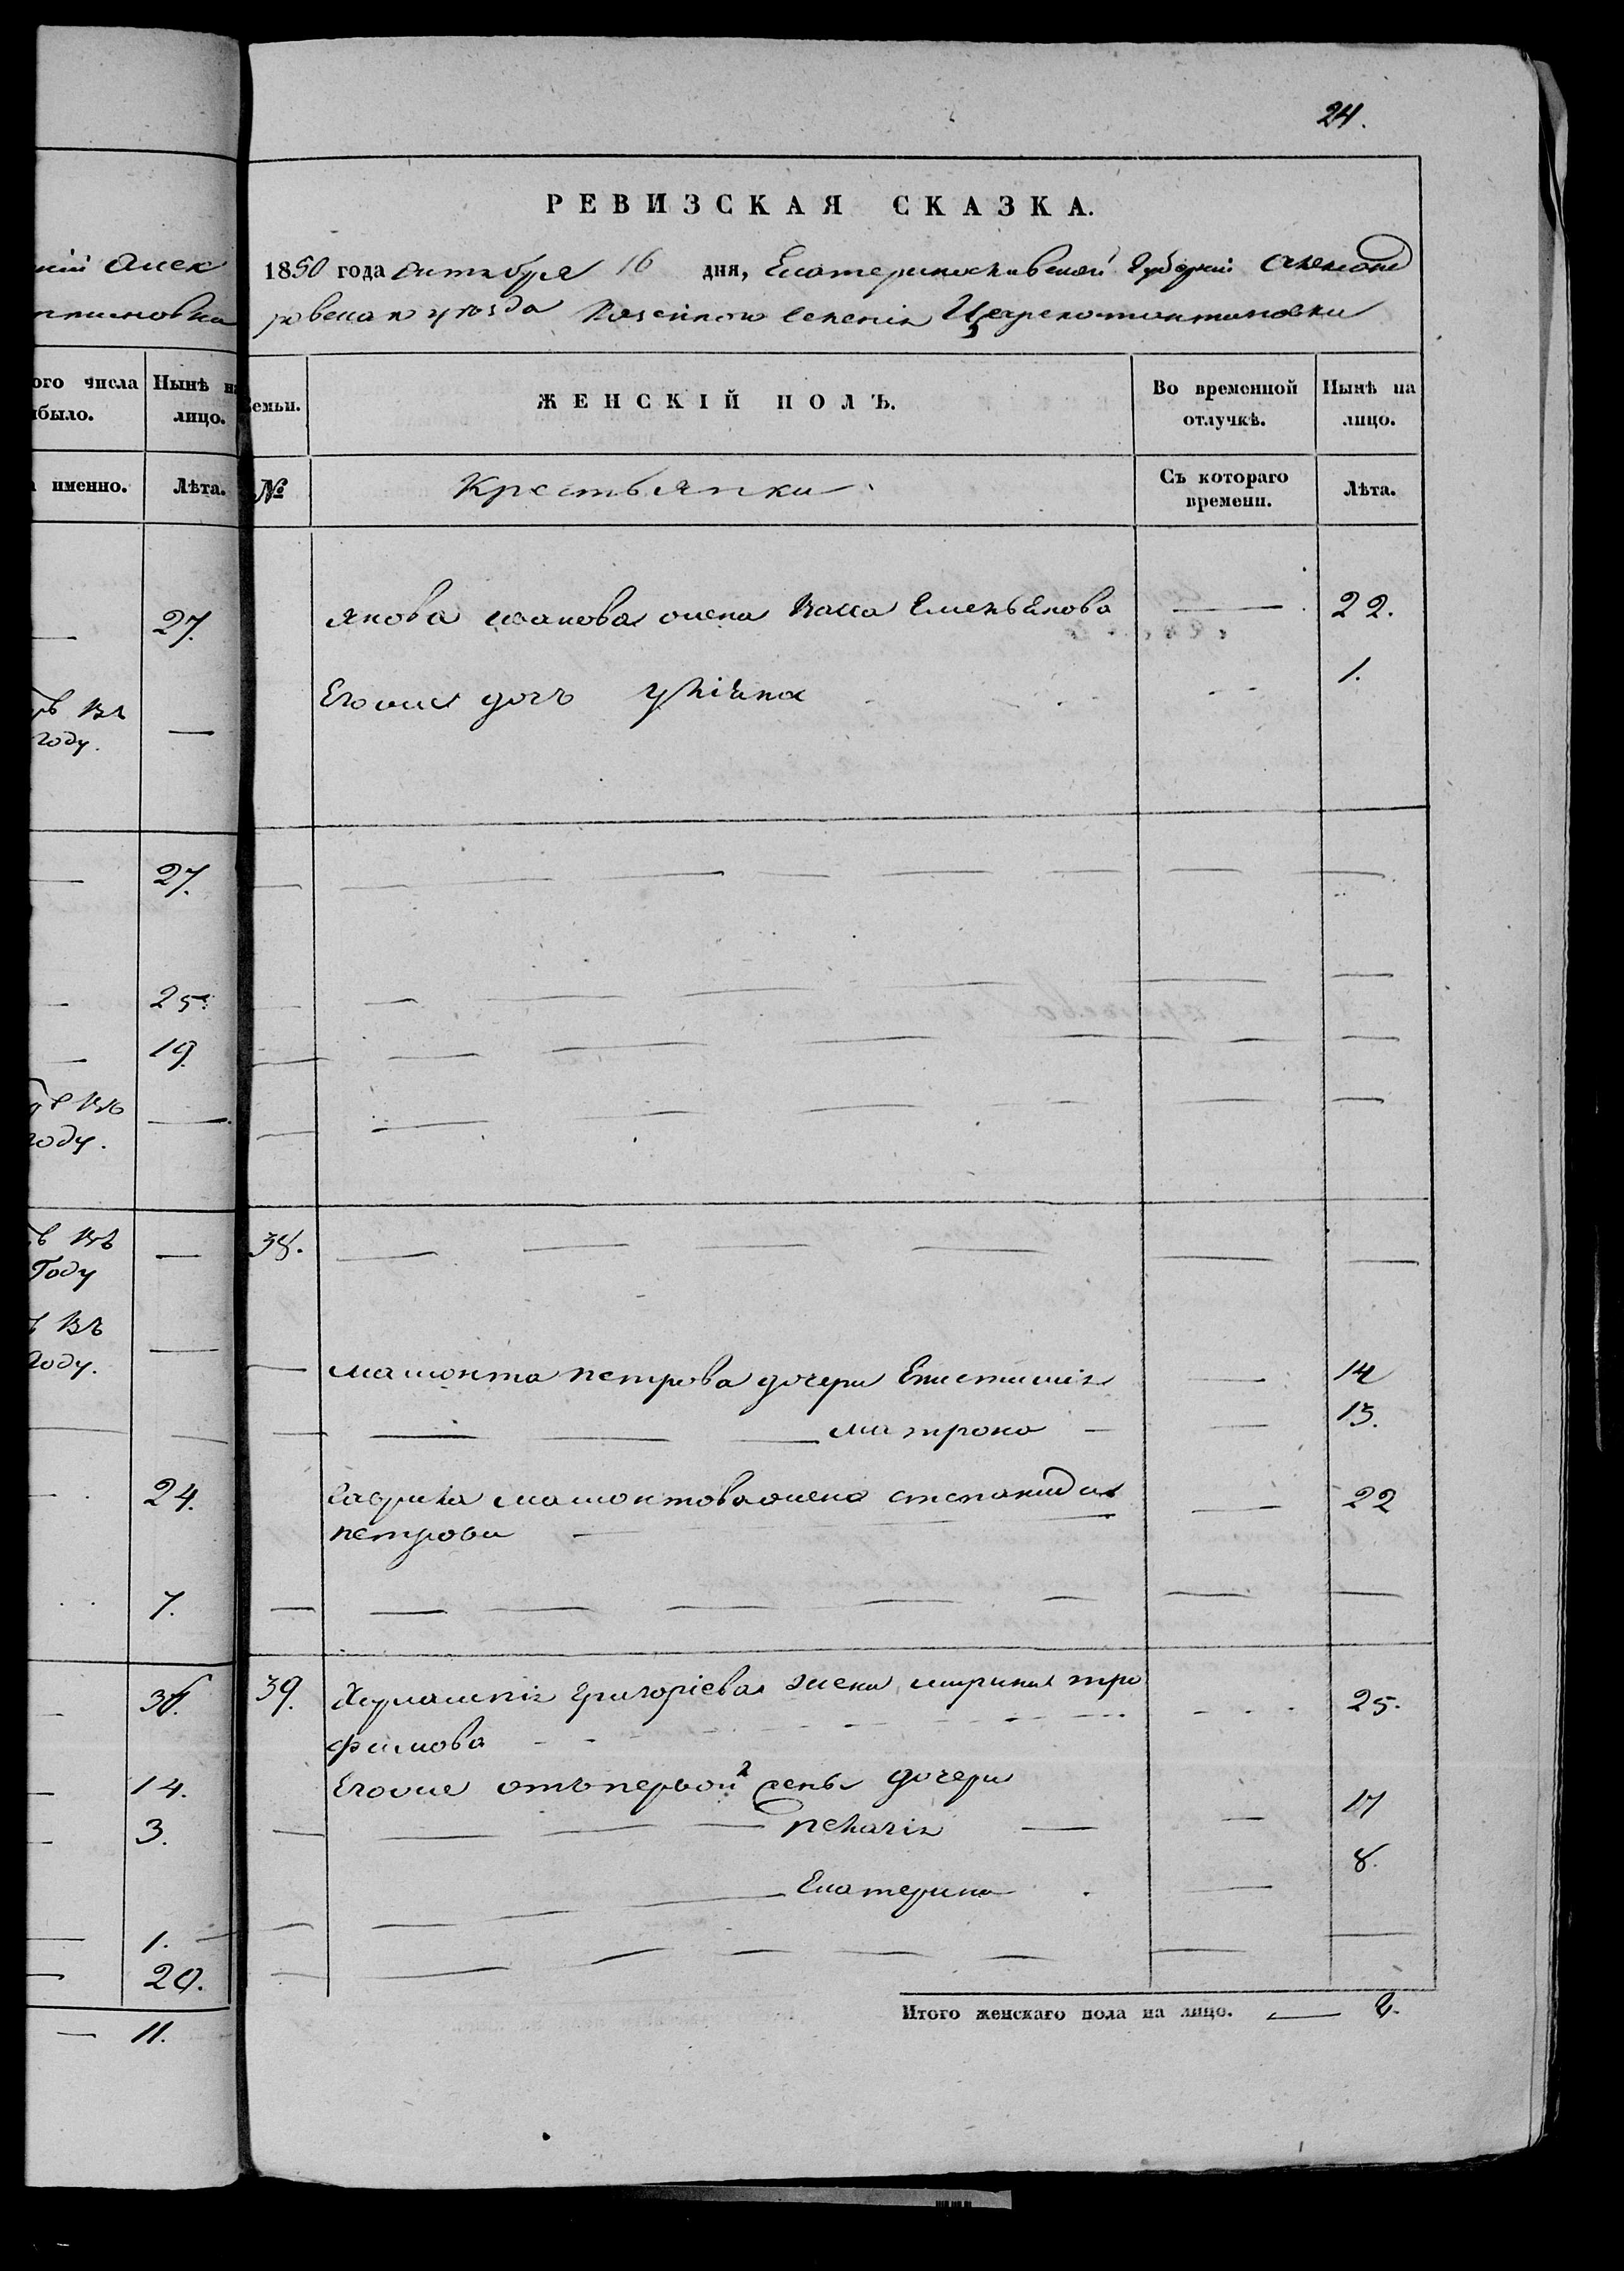 24.
РЕВИЗСКАЯ СКАЗКА.
кій Алек
1850 года октября 16 дня, Екатеринославской Губерніи Александ
ровскаго уѣзда Казенного Селенія Цареконстантиновки
ого числа
было.
Нынѣ на
лицо.
Семьи.
ЖЕНСКІЙ ПОЛЪ.
Во временной
отлучкѣ.
Нынѣ на
лицо.
именно.
Лѣта.
№
Крестьянки
Съ котораго
времени.
Лѣта.
27.
Якова Иванова жена Васса Емельянова — 22.
въ
году.
—
Егоже дочь Уліяна 1.
27.
25.
19.
въ
году.
въ
Году
38.
въ
году.
Мамонта Петрова дочери Епистимія — 14
Матрона — 13.
24.
Гаврила Мамонтова жена Степанида — 22
Петрова
7.
39. Харлампія Григоріева жена Марина Тро 25.
фимова
14.
Егоже отъ первой жены дочери
3.
Пелагія — 17
Екатерина — 8.
1.
20.
11.
Итого женскаго пола на лицо. — 8.